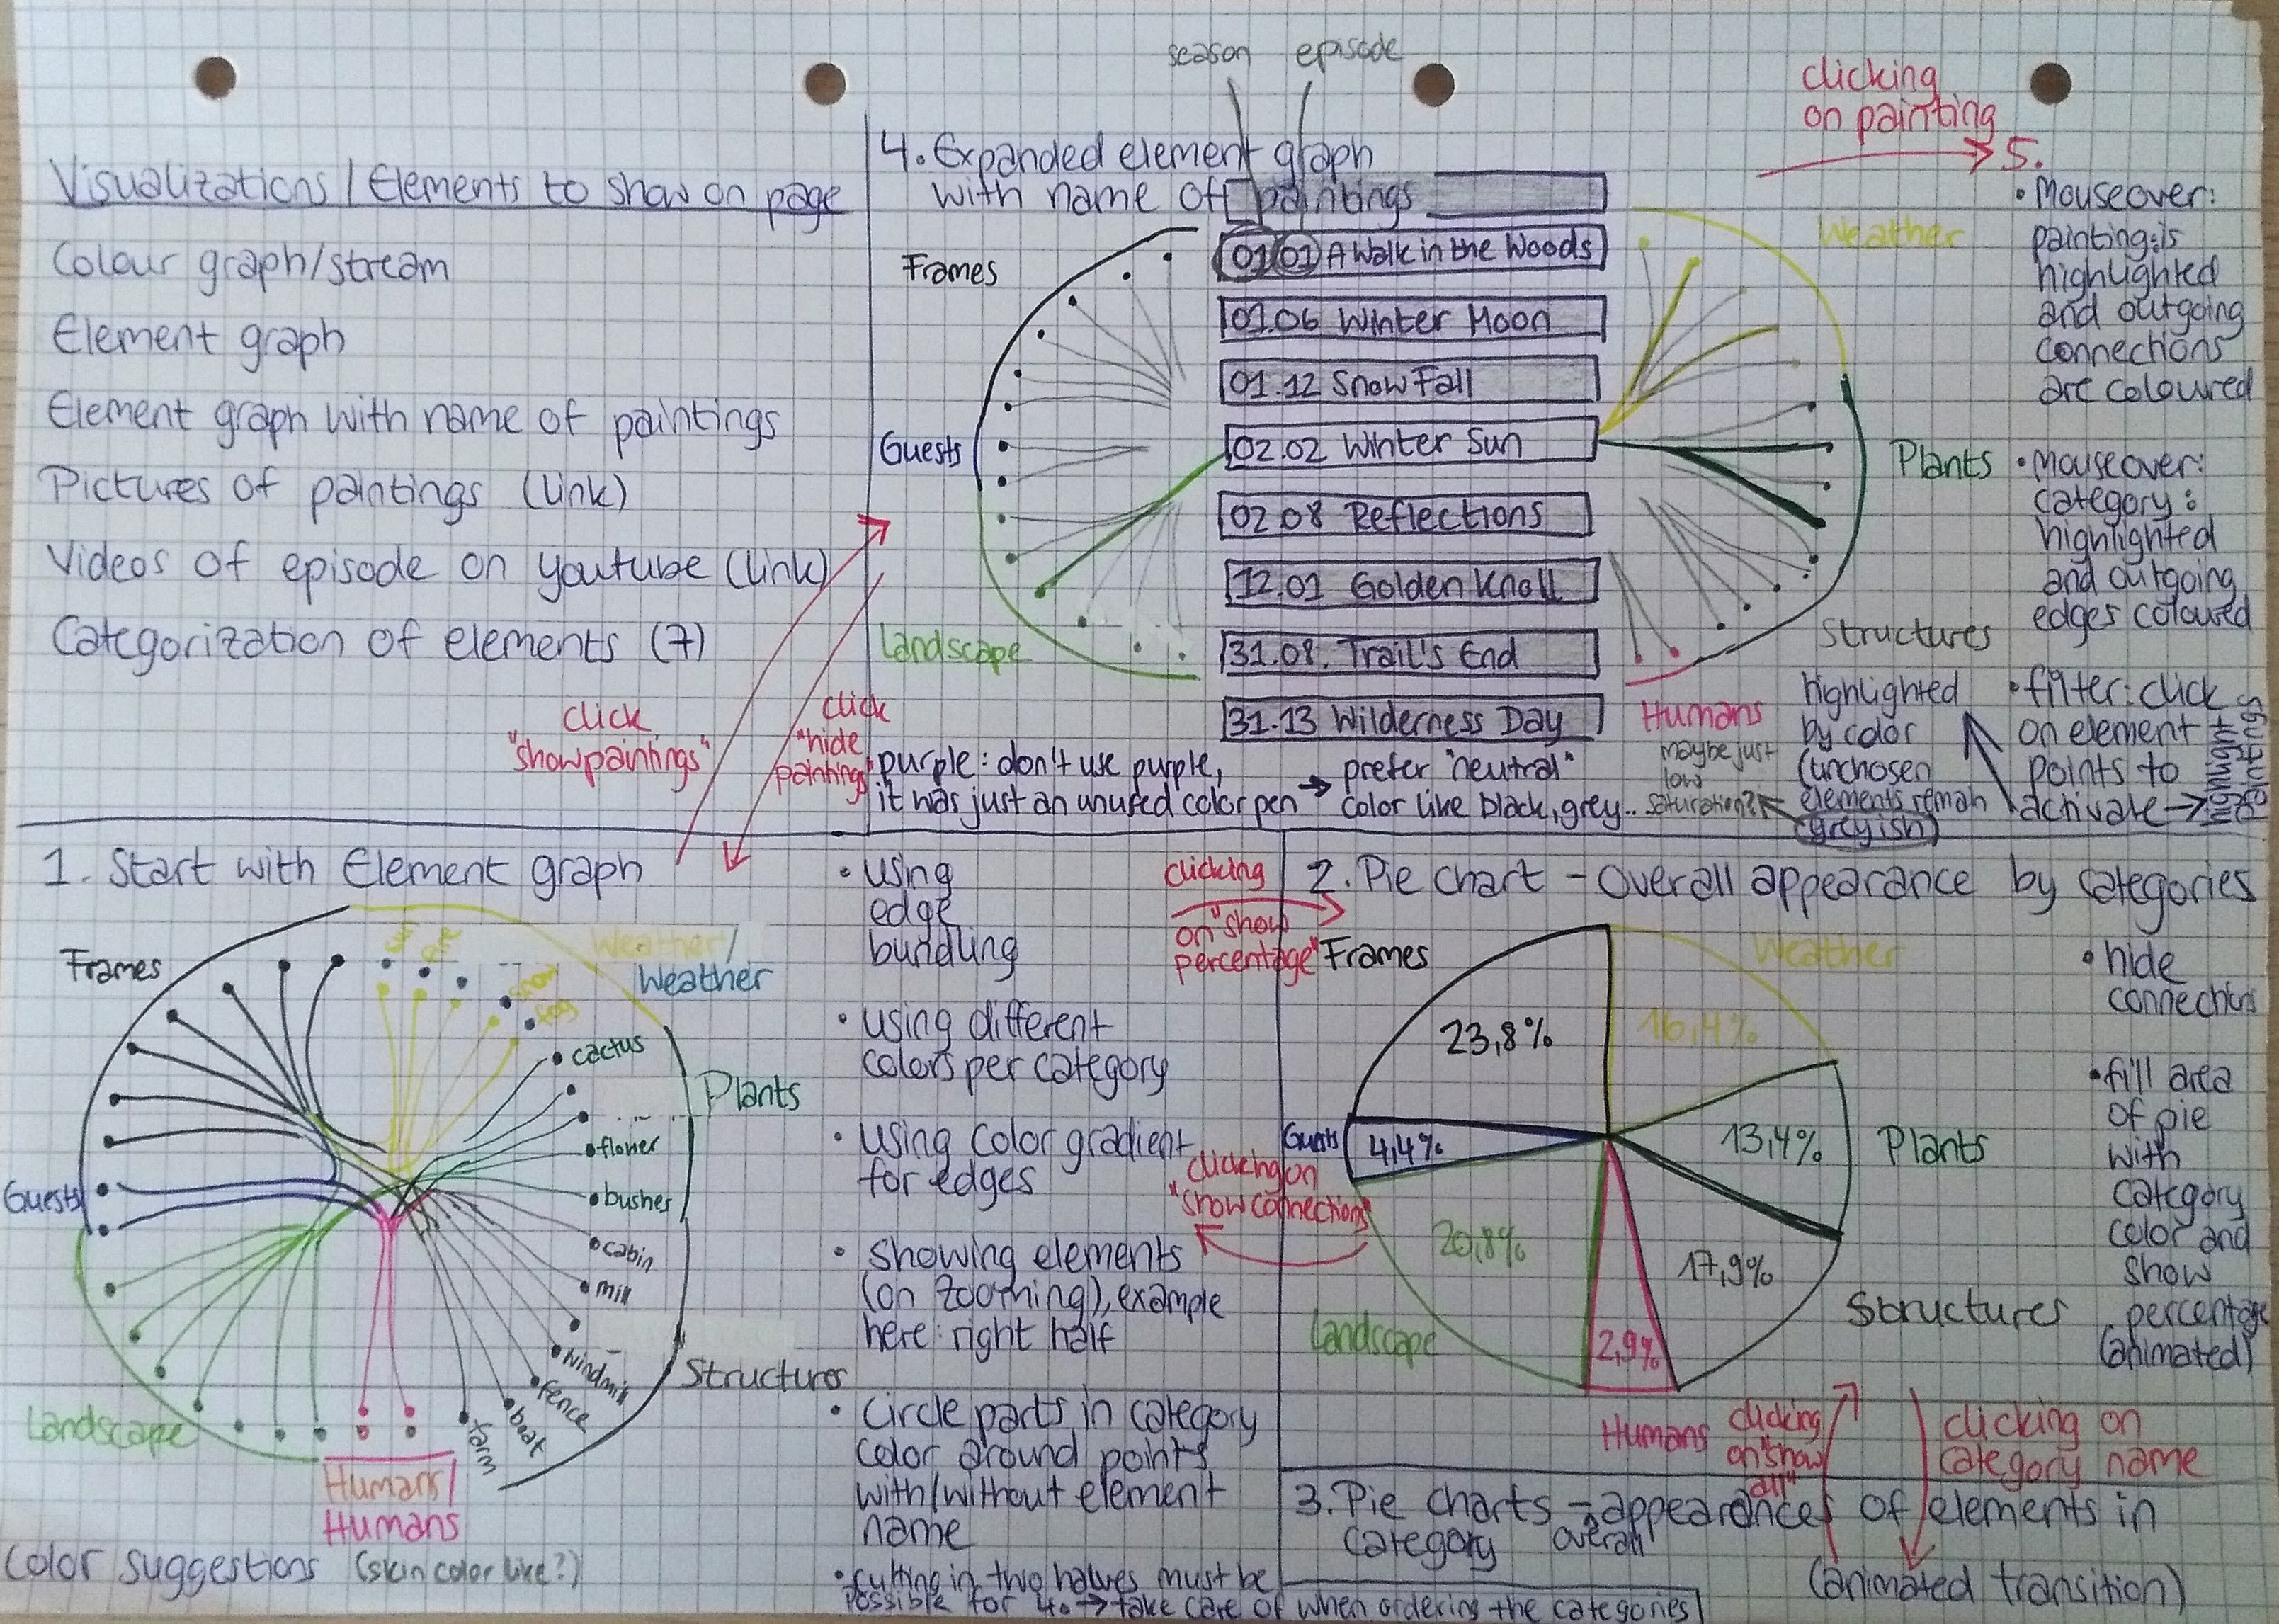 season episode
clicking
on painting
Visualizations / Elements to show on page
Colour graph/stream
Element graph
Element graph with name of paintings
Pictures of paintings (Link)
Videos of episode on youtube (Link)
Categorization of elements (7)
click
"show paintings"
click
"hide
paintings"
4. Expanded element graph
with name off paintings
Frames
Guests
Landscape
01 01 A Walk in the Woods
01.06 Winter Moon
01.12 Snow Fall
02.02 Winter Sun
02.08 Reflections
12.01 Golden Knoll
31.08. Trail's End
31.13 Wilderness Day
Weather
Plants
Structures
Humans
purple: don't use purple,
it was just an unused color pen → prefer "neutral"
color like black, grey..
maybe just
low
saturation?
highlighted
by color
(unchosen
elements remain
greyish)
5.
• Mouseover:
painting: is
highlighted
and outgoing
connections
are coloured
• Mouseover:
category:
highlighted
and outgoing
edges coloured
• filter: click
on element
points to
activate →
1. Start with Element graph
Frames
Weather/
Weather
snow
fog
cactus
Plants
flower
bushes
cabin
mill
windmill
fence
boat
farm
Structures
Guests
Landscape
Humans/
Humans
Color suggestions (skin color like?)
• using
edge
bundling
• using different
colors per category
• using color gradient
for edges
• showing elements
(on zooming), example
here: right half
• Circle parts in category
color around points
with/without element
name
• cutting in two halves must be
possible for 4. → take care of when ordering the categories!
clicking
on "show
percentage"
2. Pie chart - overall appearance by categories
Frames
23,8%
Weather
16,4%
Plants
13,4%
Structures
17,9%
Humans
2,9%
Landscape
20,8%
Guests
4,4%
clicking on
"show connections"
• hide
connections
• fill area
of pie
with
category
color and
show
percentage
(animated)
clicking
on "show
all"
clicking on
category name
3. Pie charts - appearances of elements in
category overall
(animated transition)